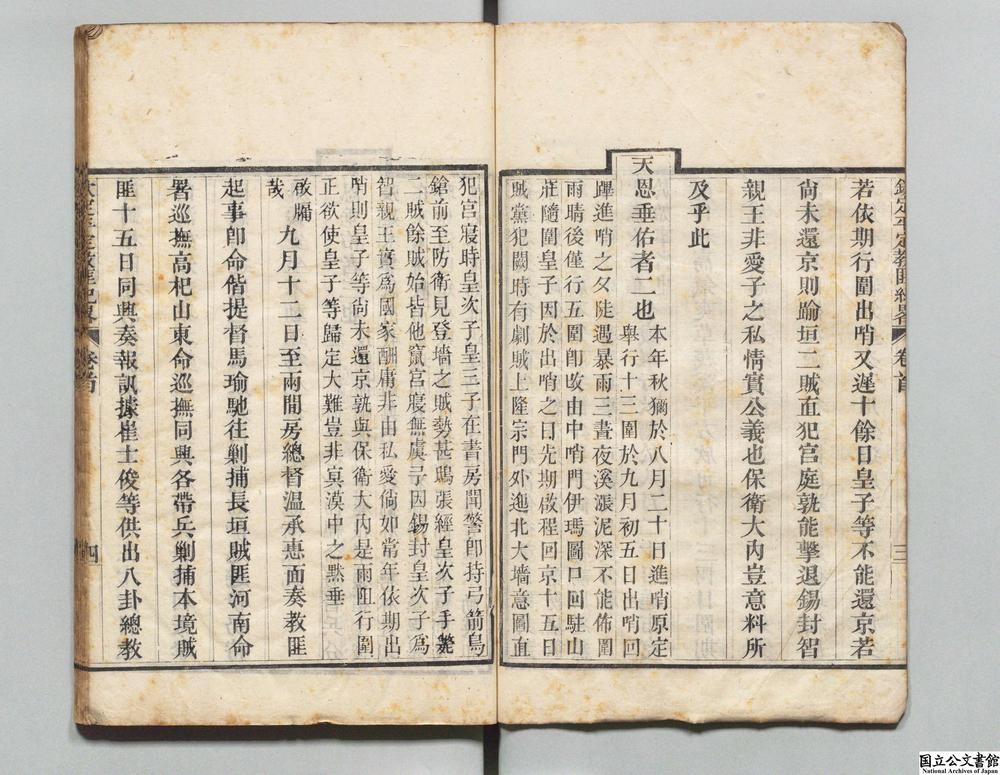 欽定平定教匪紀畧 卷首 三
若依期行圍出哨又遲十餘日皇子等不能還京若
尚未還京則踰垣二賊直犯宮庭孰能擊退錫封智
親王非愛子之私情實公義也保衛大內豈意料所
及乎此
天恩垂佑者二也
本年秋獮於八月二十日進哨原定
舉行十三圍於九月初五日出哨回
蹕進哨之夕陡遇暴雨三晝夜溪漲泥深不能佈圍
雨晴後僅行五圍即改由中哨門伊瑪圖口回駐山
莊隨圍皇子因於出哨之日先期啟程回京十五日
賊黨犯闕時有劇賊上隆宗門外迤北大墻意圖直
犯宮寢時皇次子皇三子在書房聞警即持弓箭鳥
鎗前至防衛見登墻之賊勢甚鴟張經皇次子手斃
二賊餘賊始皆他竄宮寢無虞予因錫封皇次子為
智親王實為國家酬庸非由私愛倘如常年依期出
哨則皇子等尚未還京孰與保衛大內是雨阻行圍
正欲使皇子等歸定大難豈非冥漠中之黙垂
啟牖
哉
九月十二日至兩間房總督溫承惠面奏教匪
起事即命偕提督馬瑜馳往剿捕長垣賊匪河南命
署巡撫高杞山東命巡撫同興各帶兵剿捕本境賊
匪十五日同興奏報訊據崔士俊等供出八卦總教
欽定平定教匪紀畧 卷首 四
国立公文書館
National Archives of Japan